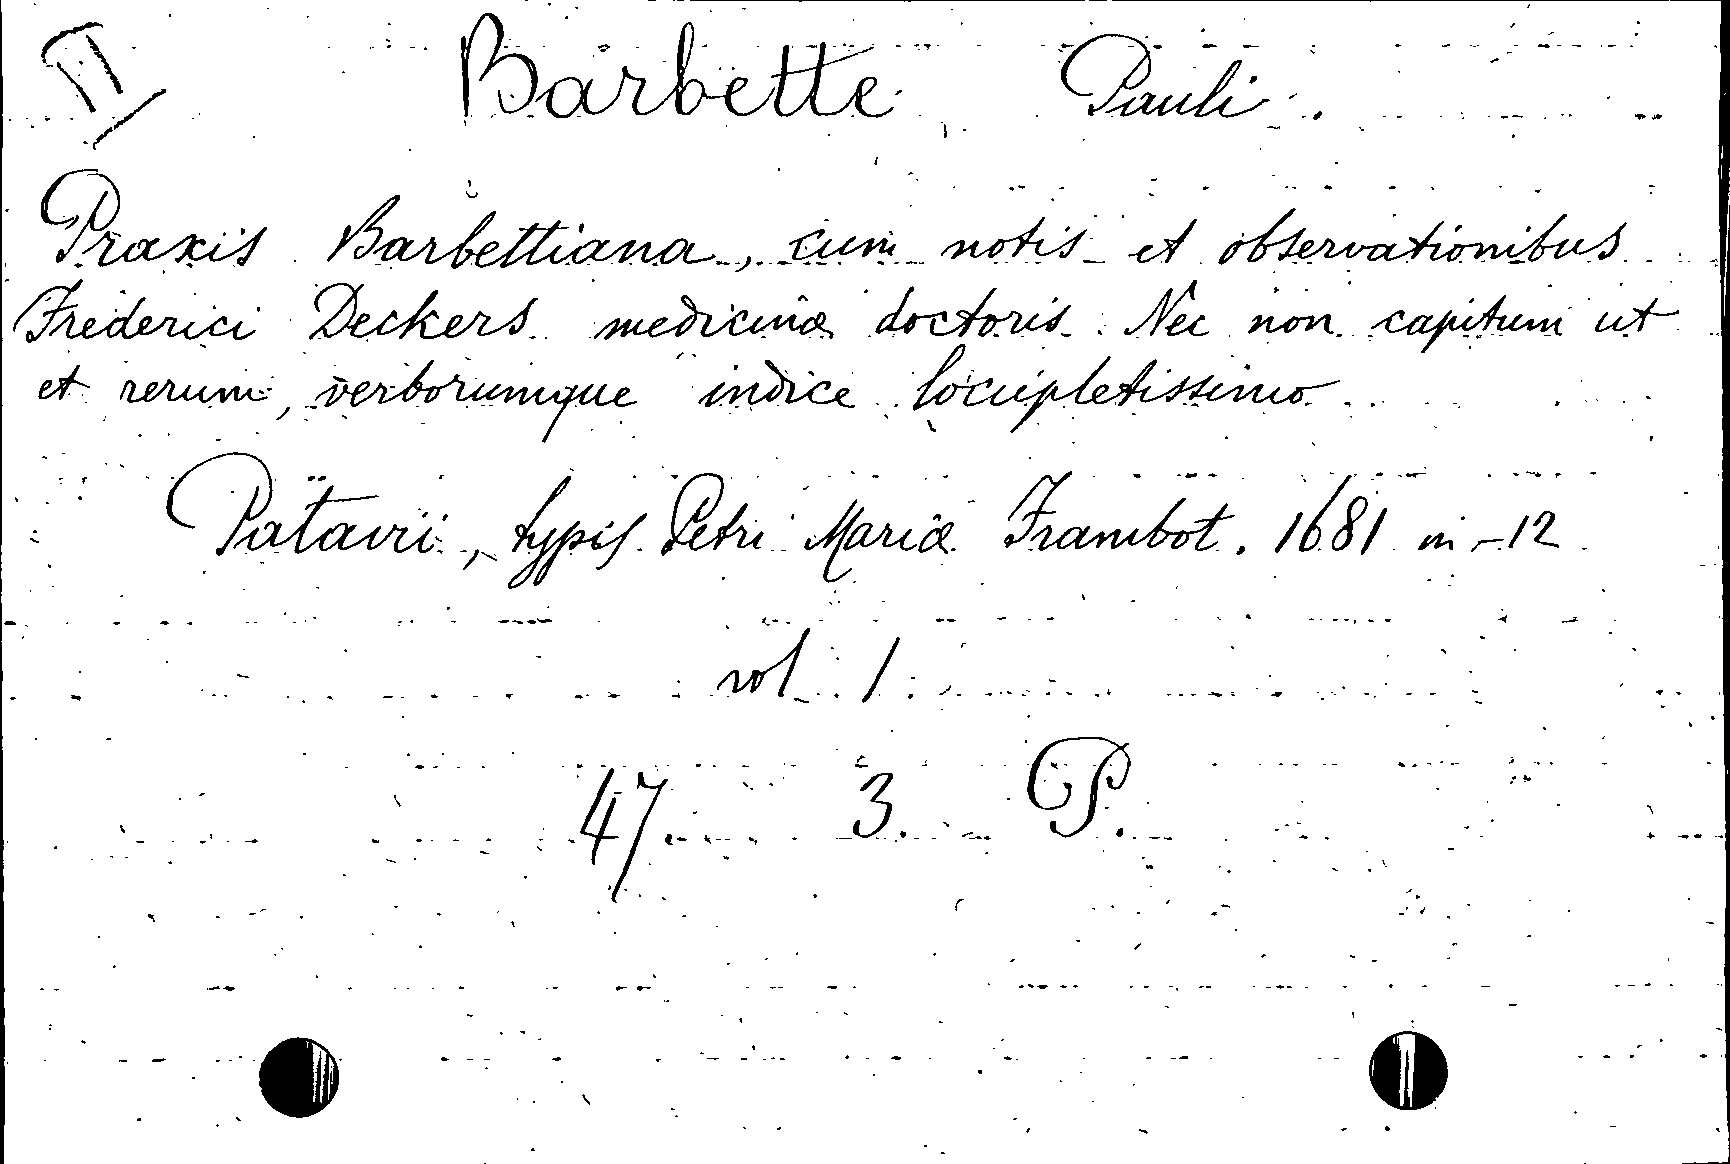 II
Barbette Pauli.
Praxis Barbettiana, cum notis et observationibus
Frederici Deckers medicinæ doctoris. Nec non capitum ut
et rerum, verborumque indice locupletissimo
Patavii, typis Petri Mariæ Frambot. 1681 in-12
vol 1
47. 3. P.